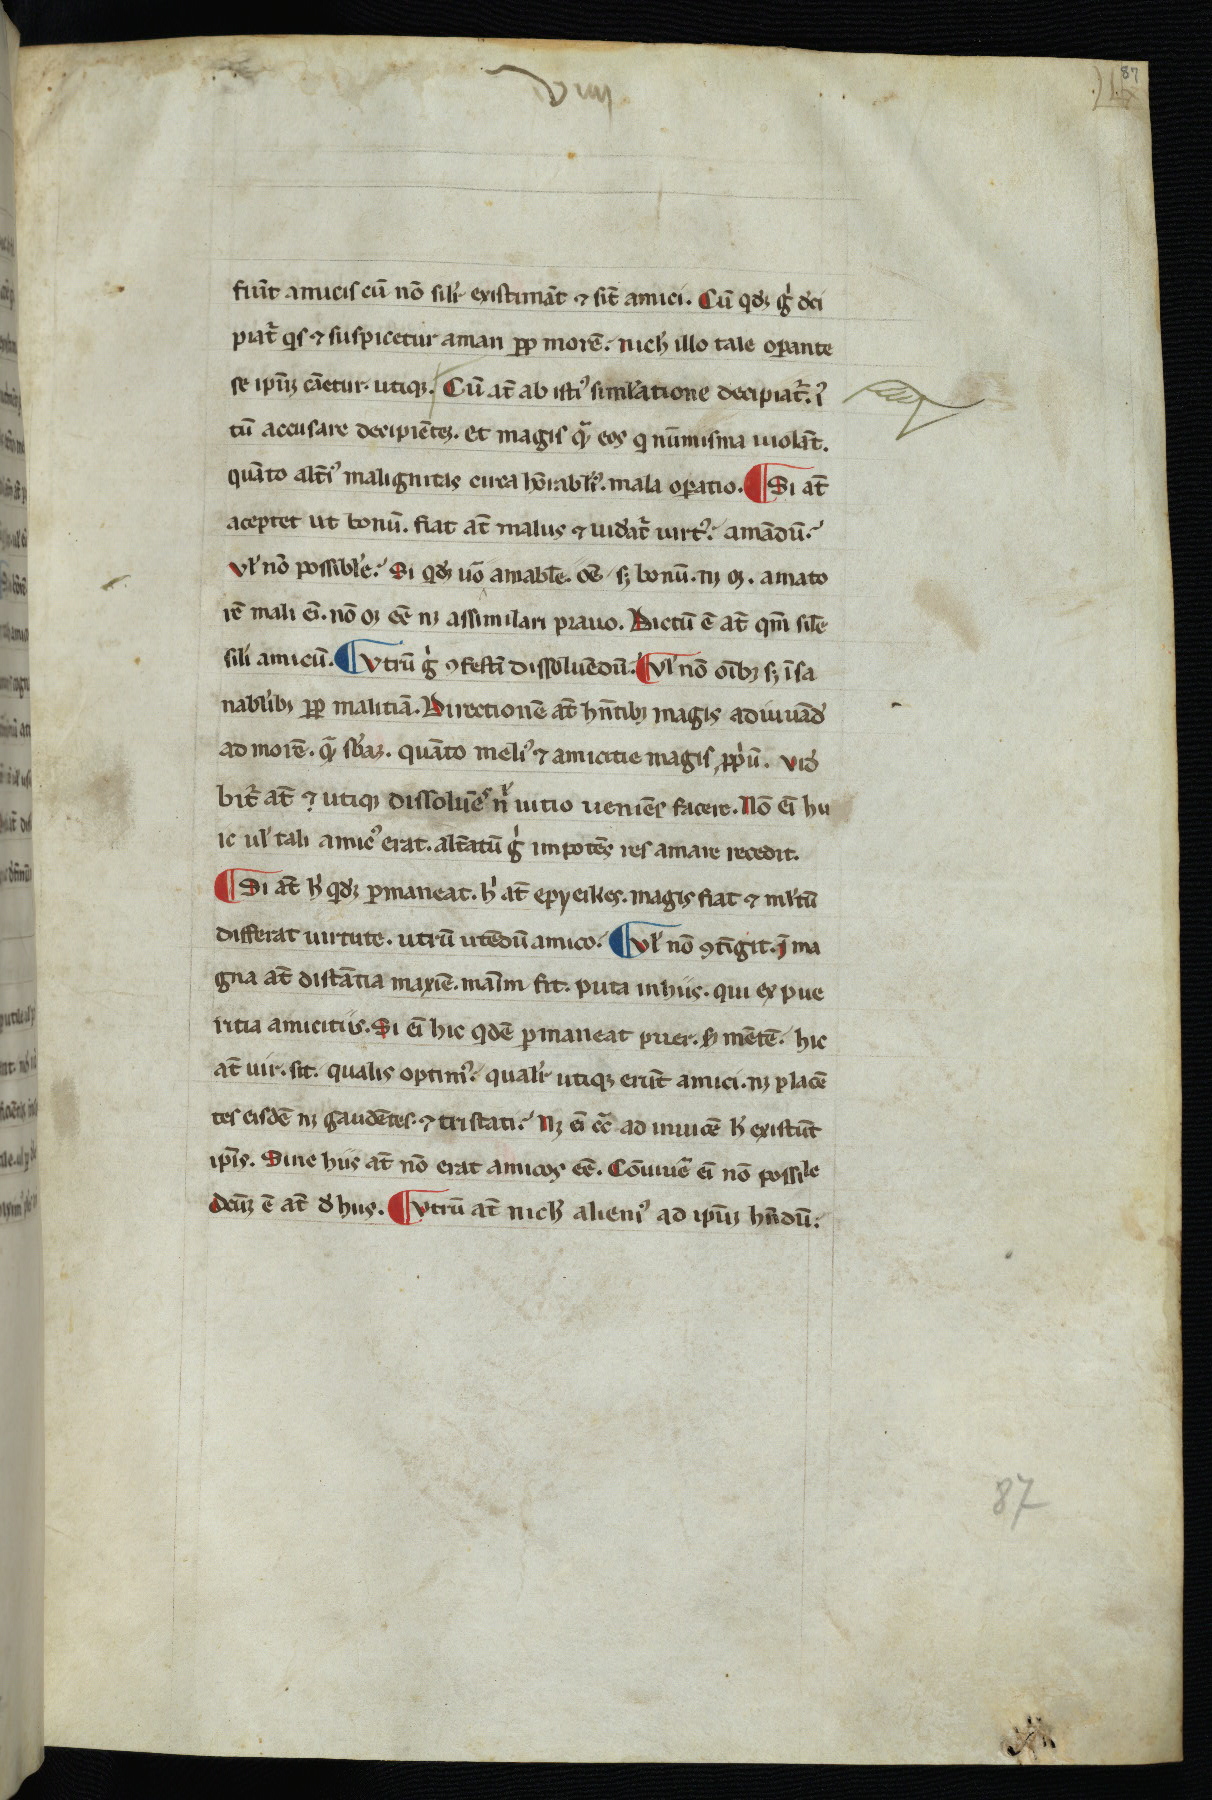 87
fiūt amicis cū nō silr̄ existimāt ⁊ sīt amici. Cū qdꝫ gͥ deci
piat᷑ qͥs ⁊ suspicetur amari ꝓp morē. nich̄ illo tale operante
se ipm̄ cāetur. utiqꝫ. Cū at̄ ab isti᾽ simlatione decipiat᷑. iͥ
tū accusare decipiētē. et magis qͣ eos qͥ nūmisma uiolāt.
quāto alti᾽ malignitas circa hōrabli᾽. mala operatio. ¶ Si at̄
aceptet ut bonū. fiat at̄ malus ⁊ uideat᷑ uirt᾽. amādū.
vl̄ nō possible. Si qdꝫ uō amable. oē sꝫ bonū. nꝫ oꝫ. amato
rē mali ei. nō oꝫ eē nꝫ assimilari prauo. Dictū ē at̄ qm̄ sile
sili amicū. ¶ Vtrū gͥ ꝯfestī dissoluēdū. ¶ Vl̄ nō oībꝫ sꝫ īsa
nabilibꝫ ꝓp malitiā. Directionē at̄ hn̄tibꝫ magis adiuuād
ad morē. qͣ sbaꝫ. quāto meli᾽ ⁊ amicitie magis ꝓpͥū. vid
bit᷑ at̄ ⁊ utiqꝫ dissoluēs nͥ uitio ueniēs facere. Nō eī hu
ic ul̄ tali amic᾽ erat. altātū gͥ impotēs res amare recedit.
¶ Si at̄ hͥ qdꝫ ꝑmaneat. hͥ at̄ epyeikes. magis fiat ⁊ ml̄tū
differat uirtute. utrū utēdū amico. ¶ Vl̄ nō ꝯtīgit. ī ma
gna at̄ distātia maxīe. maīm fit. puta in hiis. qui ex pue
ritia amicitiis. Si eī hic qdē ꝑmaneat puer. ẜ mētē. hic
at̄ uir. sit. qualis optim᾽. qualr̄ utiqꝫ erūt amici. nꝫ placē
tes eisdē nꝫ gaudētes. ⁊ tristati. Nꝫ eī cͨ ad inuicē h̄ existūt
ip̄is. Sine hiis at̄ nō erat amicos eē. Cōuiuē eī nō possile
dcm̄ ē at̄ d hiis. ¶ Vtrū at̄ nich̄ alieni᾽ ad ipm̄ hn̄dū.
87